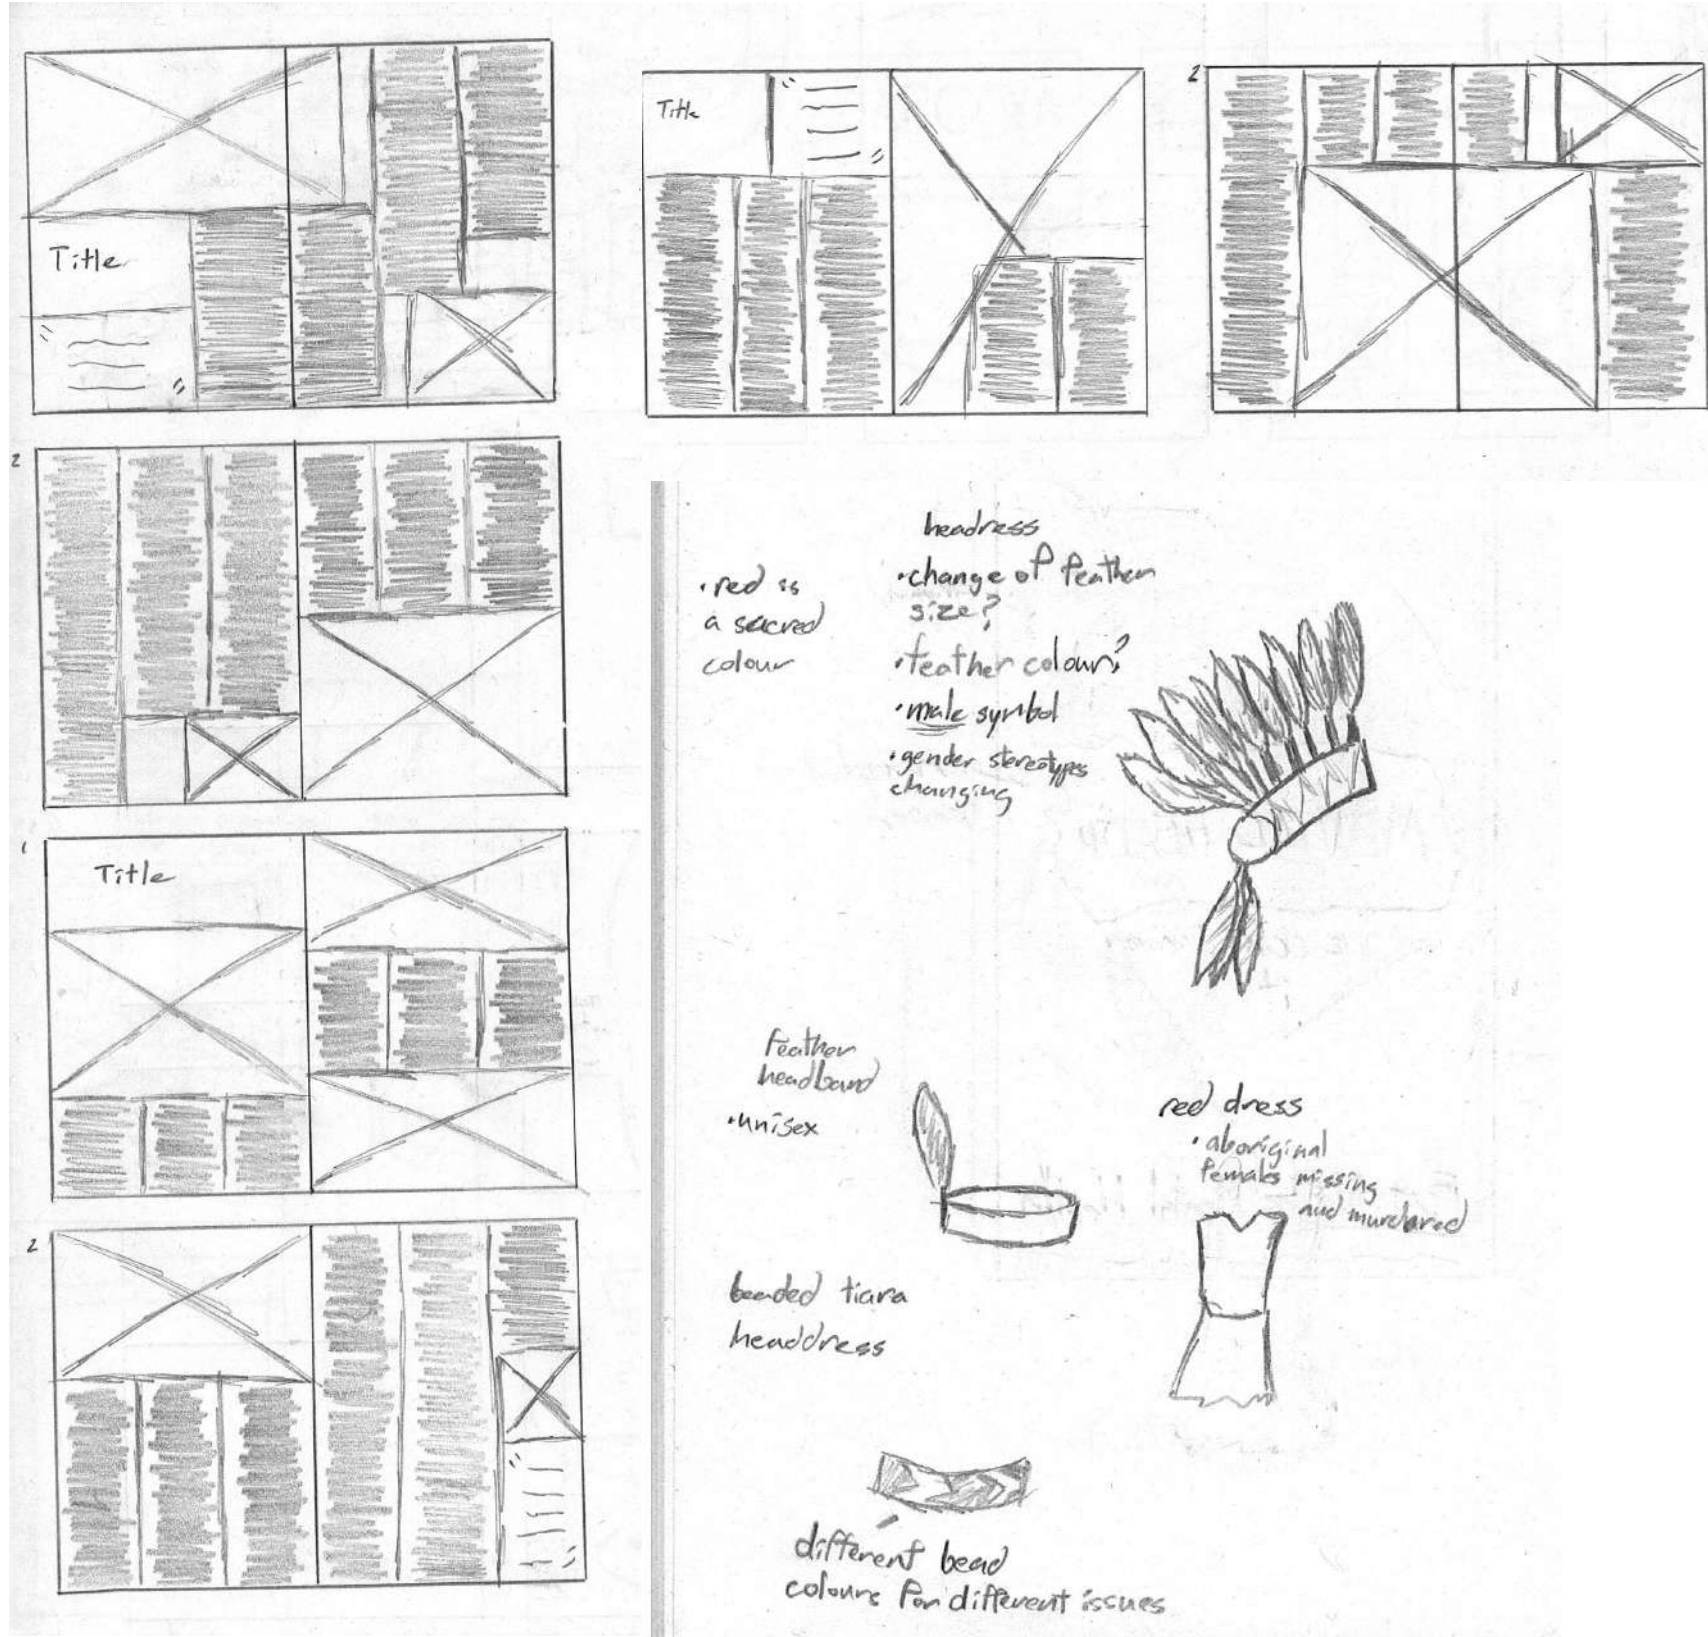 Title
Title
2
2
1
Title
2
headress
•change of feather
size?
•feather colour?
•male symbol
•gender stereotypes
changing
•red is
a sacred
colour
Feather
headband
•unisex
red dress
•aboriginal
females missing
and murdered
beaded tiara
headdress
different bead
colours for different issues